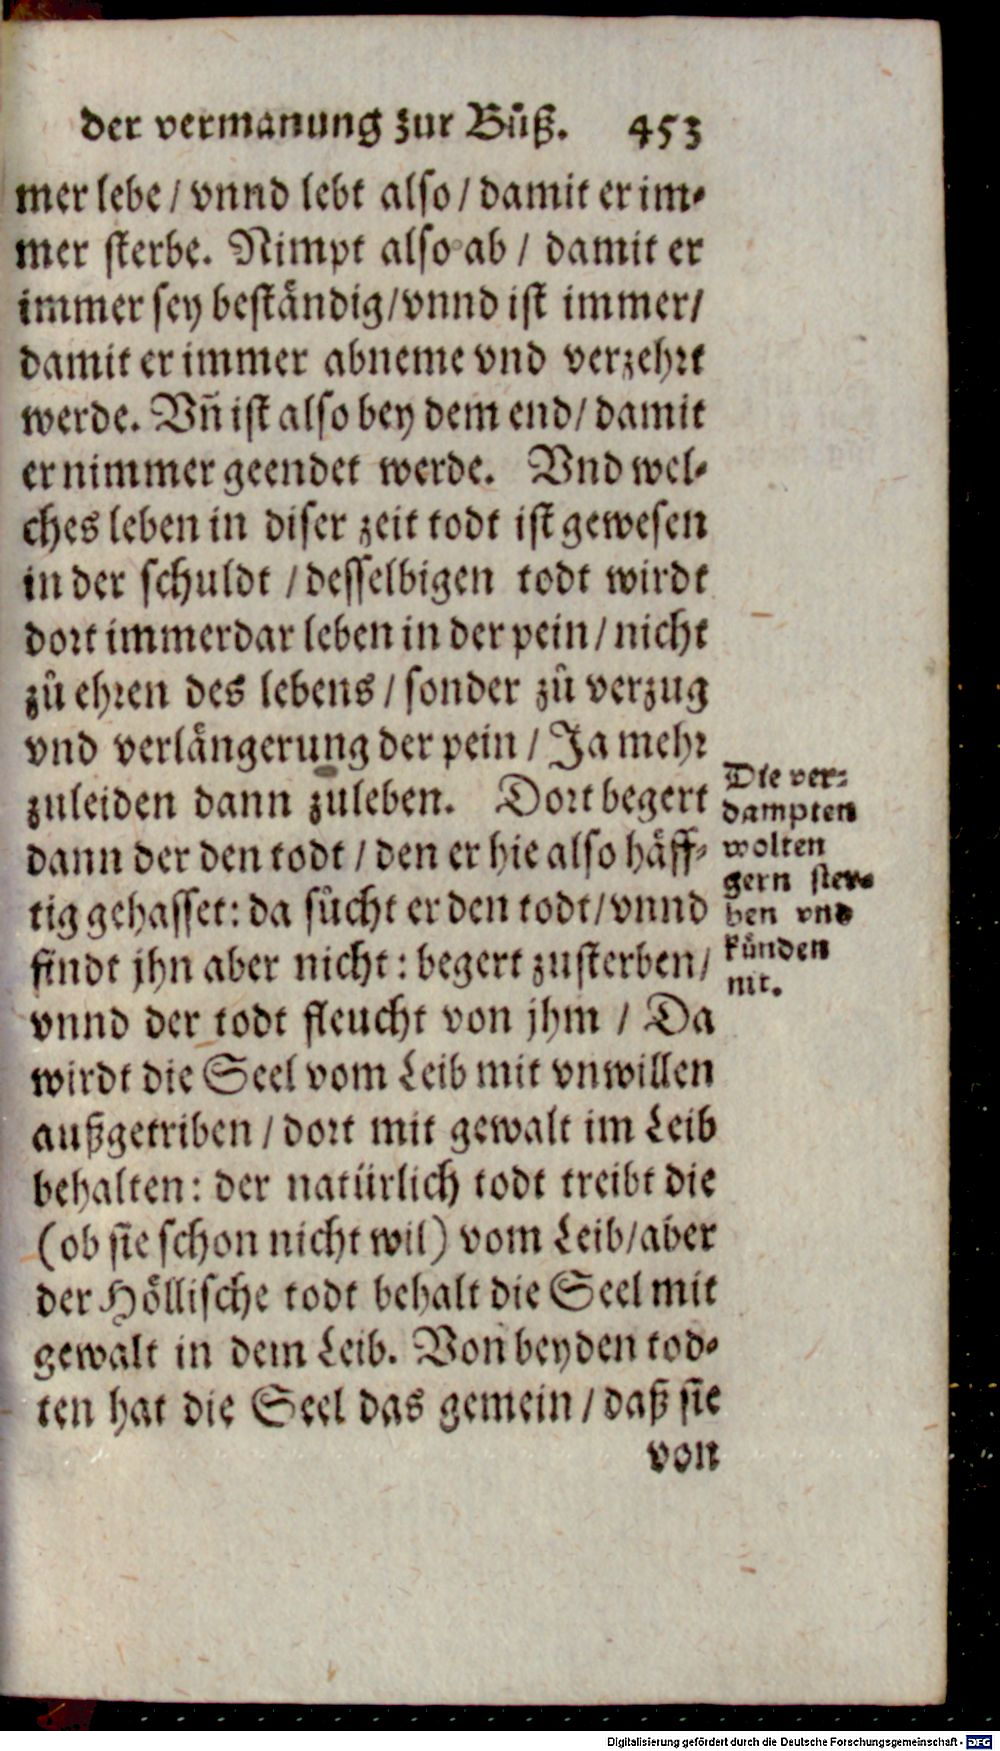 der vermanung zur Bůß. 453
mer lebe / vnnd lebt also / damit er im-
mer sterbe. Nimpt also ab / damit er
immer sey beständig / vnnd ist immer /
damit er immer abneme vnd verzehrt
werde. Vñ ist also bey dem end / damit
er nimmer geendet werde. Vnd wel-
ches leben in diser zeit todt ist gewesen
in der schuldt / desselbigen todt wirdt
dort immerdar leben in der pein / nicht
zů ehren des lebens / sonder zů verzug
vnd verlängerung der pein / Ja mehr
zuleiden dann zuleben. Dort begert
dann der den todt / den er hie also häff-
tig gehasset: da sůcht er den todt / vnnd
findt jhn aber nicht: begert zusterben /
vnnd der todt fleucht von jhm / Da
wirdt die Seel vom Leib mit vnwillen
außgetriben / dort mit gewalt im Leib
behalten: der natürlich todt treibt die
(ob sie schon nicht wil) vom Leib / aber
der Höllische todt behalt die Seel mit
gewalt in dem Leib. Von beyden tod-
ten hat die Seel das gemein / daß sie
von
Die ver-
dampten
wolten
gern ster-
ben vnd
künden
nit.
Digitalisierung gefördert durch die Deutsche Forschungsgemeinschaft - DFG